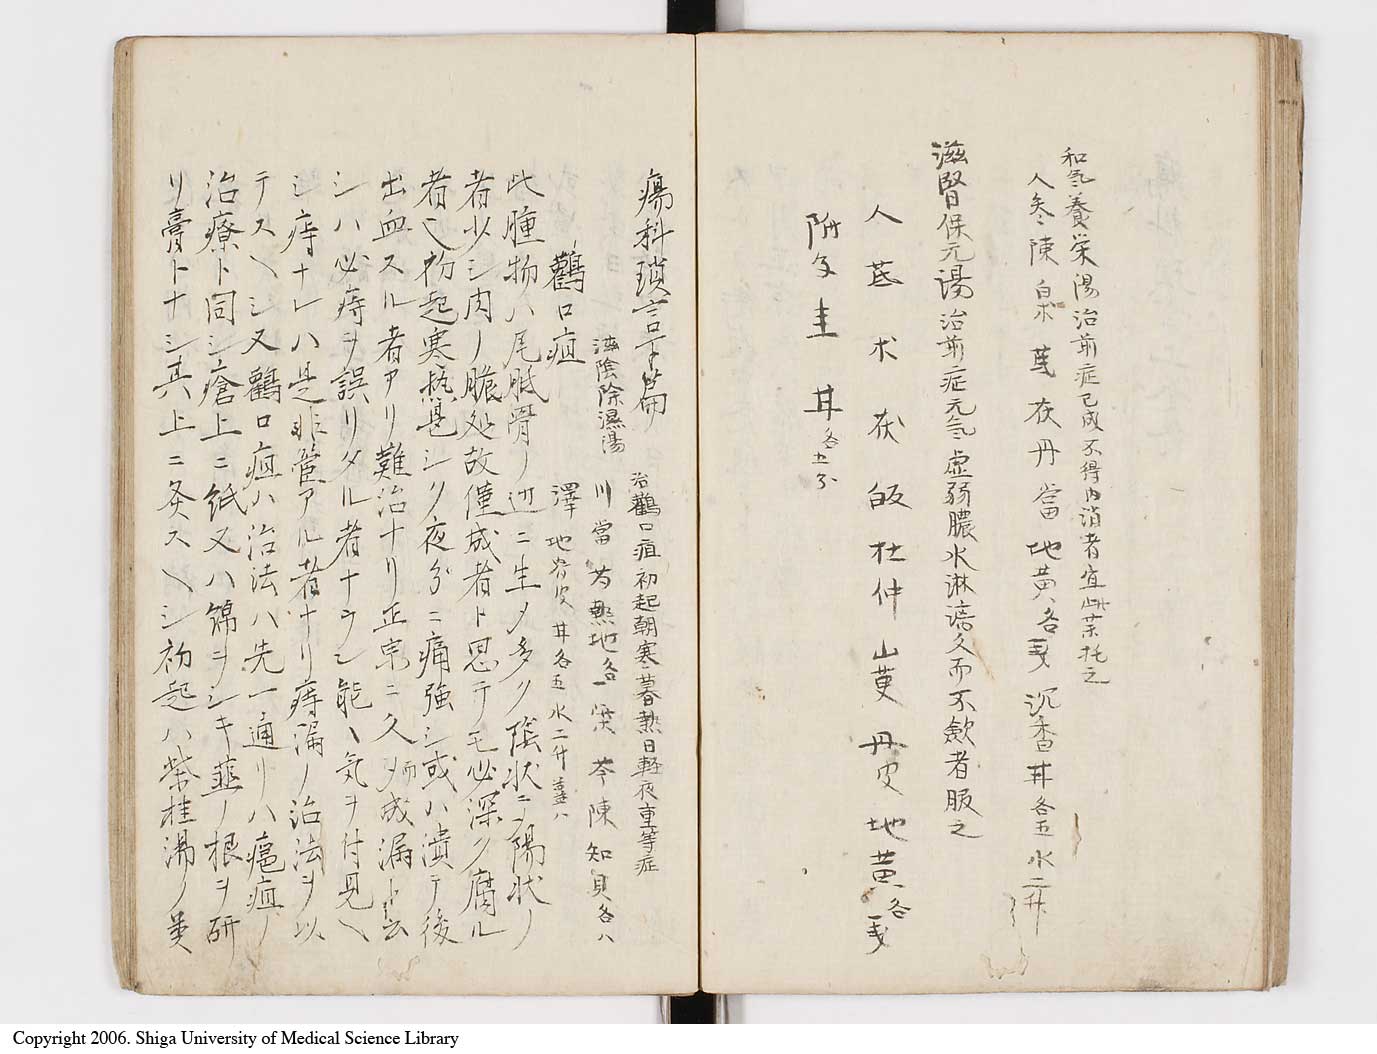 和氣養栄湯治前症已成不得内消者宜此薬托之
人参陳皃朮芪茯丹當地黄各戔沉香甘各五水二升
滋腎保元湯治前症元氣虚弱膿水淋漓久而不歛者服之
人芪朮茯皈杜仲山茰丹皮地黄各戔
附子圭甘各五分
瘍科瑣言下篇
鸛口疽
滋陰除濕湯
治鸛口疽初起朝寒暮熱日軽夜重等症
川當芍熟地各一柴芩陳知貝各八
澤地骨皮甘各五水二升薑八
此腫物ハ尾胝骨ノ辺ニ生メ多ク陰状ニメ陽状ノ
者少シ肉ノ脆処故僅成者ト思テモ必深ク腐ル
者也初起寒熱甚シク夜分ニ痛強シ或ハ潰テ後
出血スル者アリ難治ナリ正宗ニ久メ而成漏ト云
シハ必痔ヲ誤リタル者ナラン能〱気ヲ付見〱
シ痔ナレハ是非管アル者ナリ痔漏ノ治法ヲ以
テスヘシ又鸛口疽ハ治法ハ先一通リハ瘟疽ノ
治療ト同シ瘡上ニ紙又ハ錦ヲシキ韮ノ根ヲ研
リ膏トナシ其上ニ灸スヘシ初起ハ柴桂湯ノ類